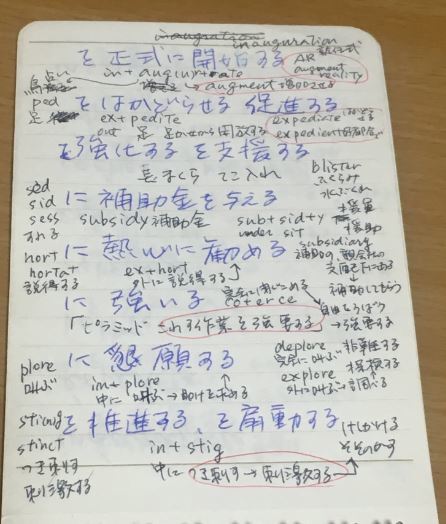 inauguration
inauguration
を正式に開始する
AR
augment
reality
in+aug(u)r+ate
augment 増加させる
ped
足
をはかどらせる 促進する
ex+pedite
out 足
expediate
expedient
を強化する を支援する
長まくら てこ入れ
blister
ふくらみ
水ぶくれ
sed
sid
sess
すわる
に補助金を与える
subsidy 補助金
sub+sid+y
under sit
援軍
援助
subsidiary
補助の、親会社の
支配下にある
補助してもらう
hort
hortat
説得する
に熱心に勧める
ex+hort
外に説得する
に強いる
完全に閉じこめる
coerce
自由をうばう
→強要する
「ピラミッド これる作業を強要する
plore
叫ぶ
に懇願する
in+plore
中に 叫ぶ→助けを求める
deplore
完全に叫ぶ 非難する
explore 探検する
外に叫ぶ→調べる
stinct
つき刺す
刺激する
を推進する、を扇動する
in+stig
中に つき刺す→刺激する
けしかける
そそのかす